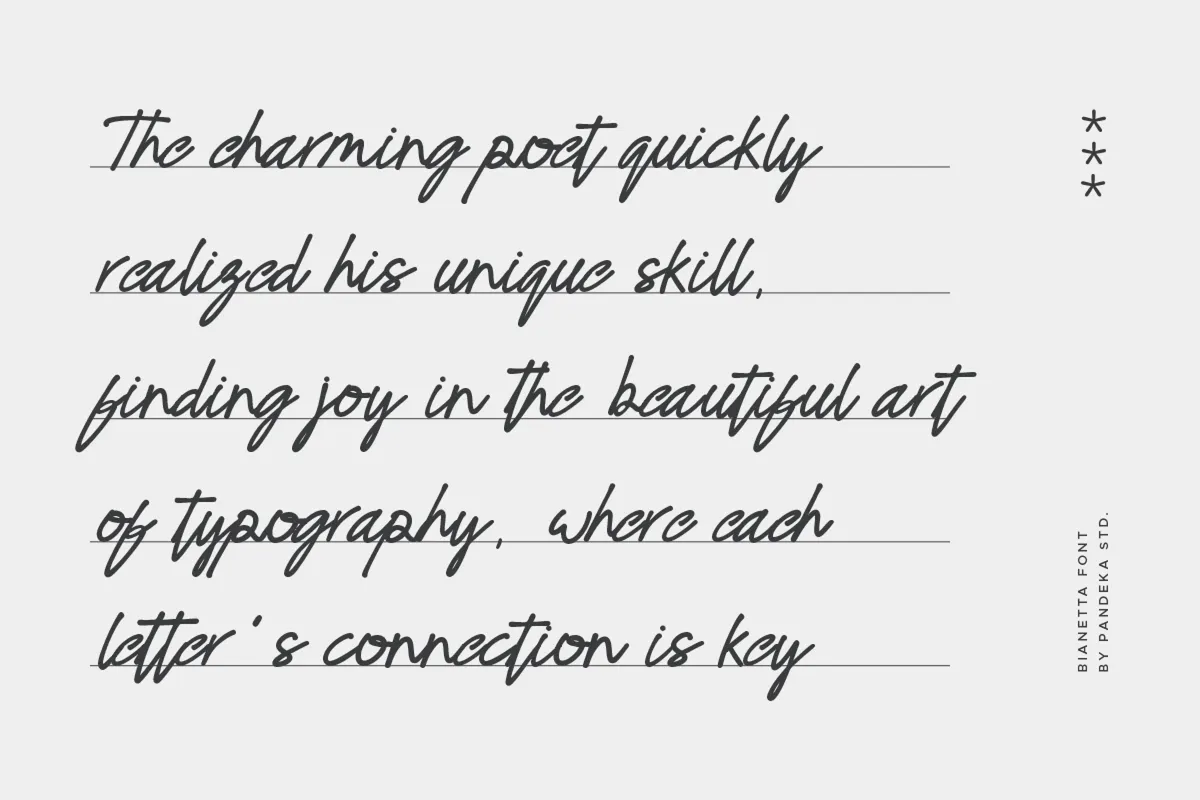 The charming poet quickly
realized his unique skill,
finding joy in the beautiful art
of typography, where each
letter's connection is key
***
BIANETTA FONT
BY PANDEKA STD.